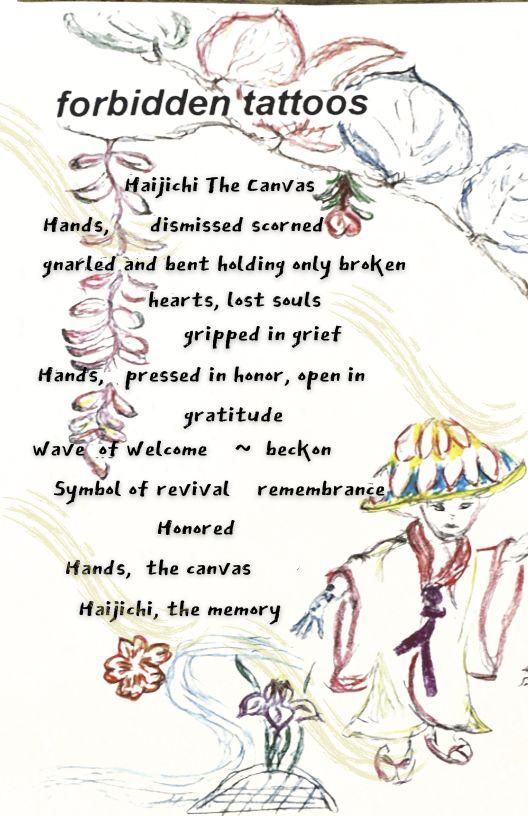 forbidden tattoos
Haijichi The Canvas
Hands, dismissed scorned
gnarled and bent holding only broken
hearts, lost souls
gripped in grief
Hands, pressed in honor, open in
gratitude
Wave of Welcome ~ beckon
Symbol of revival remembrance
Honored
Hands, the canvas
Haijichi, the memory